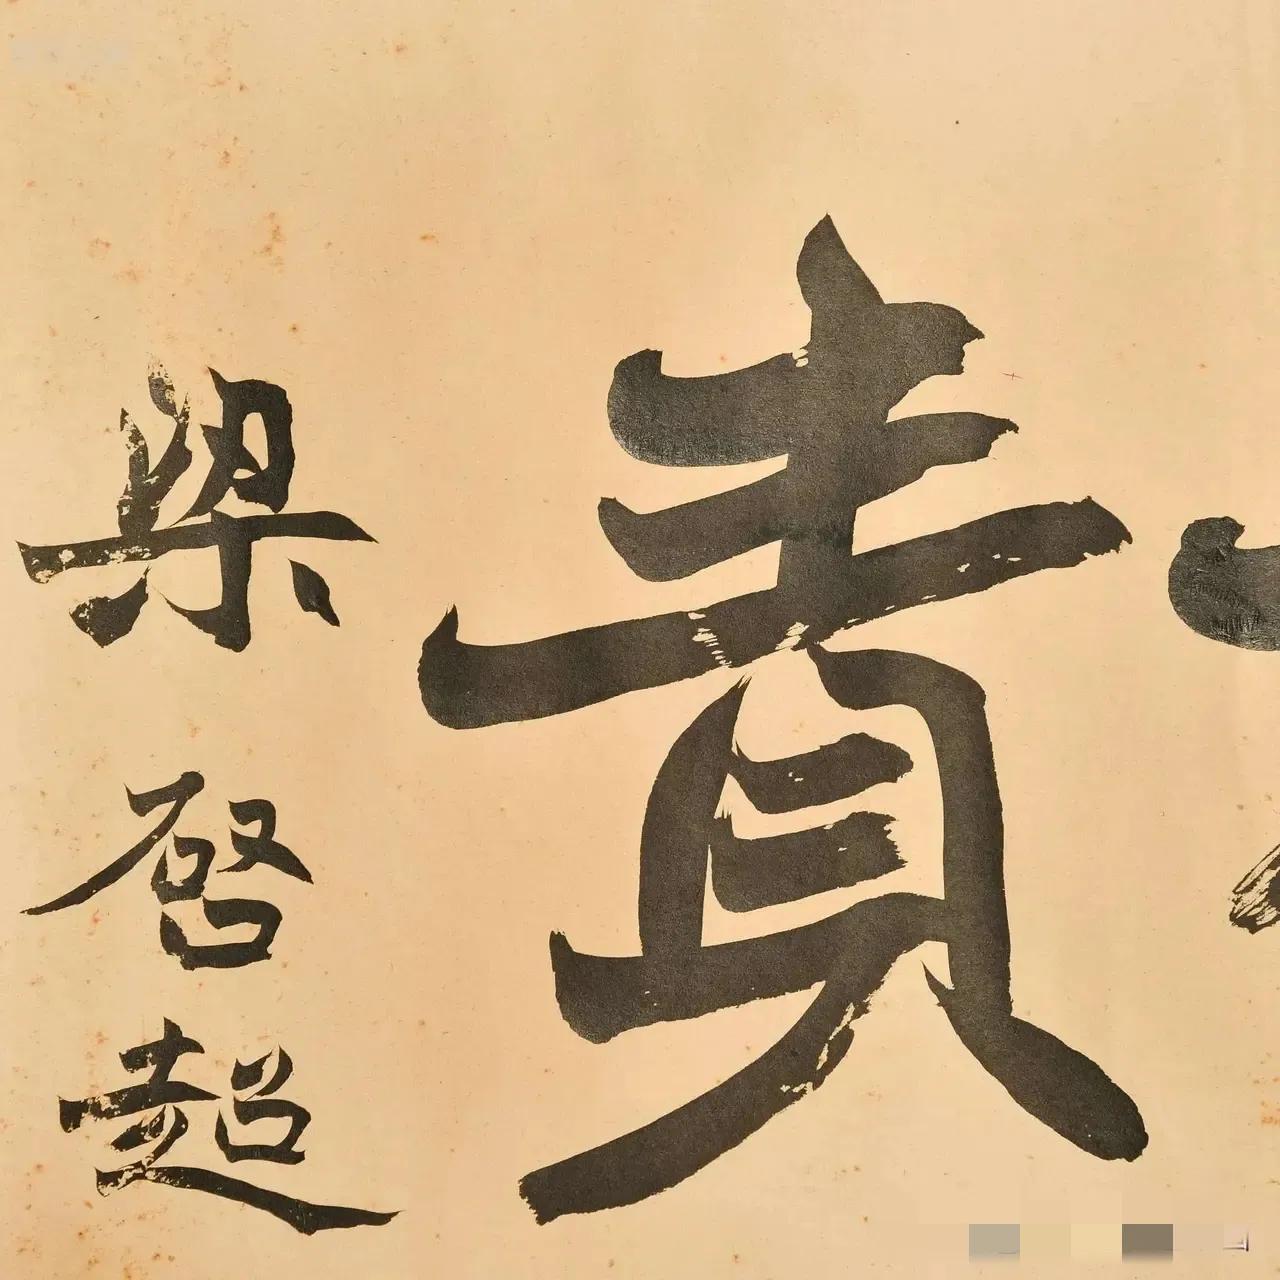 責
梁啓超